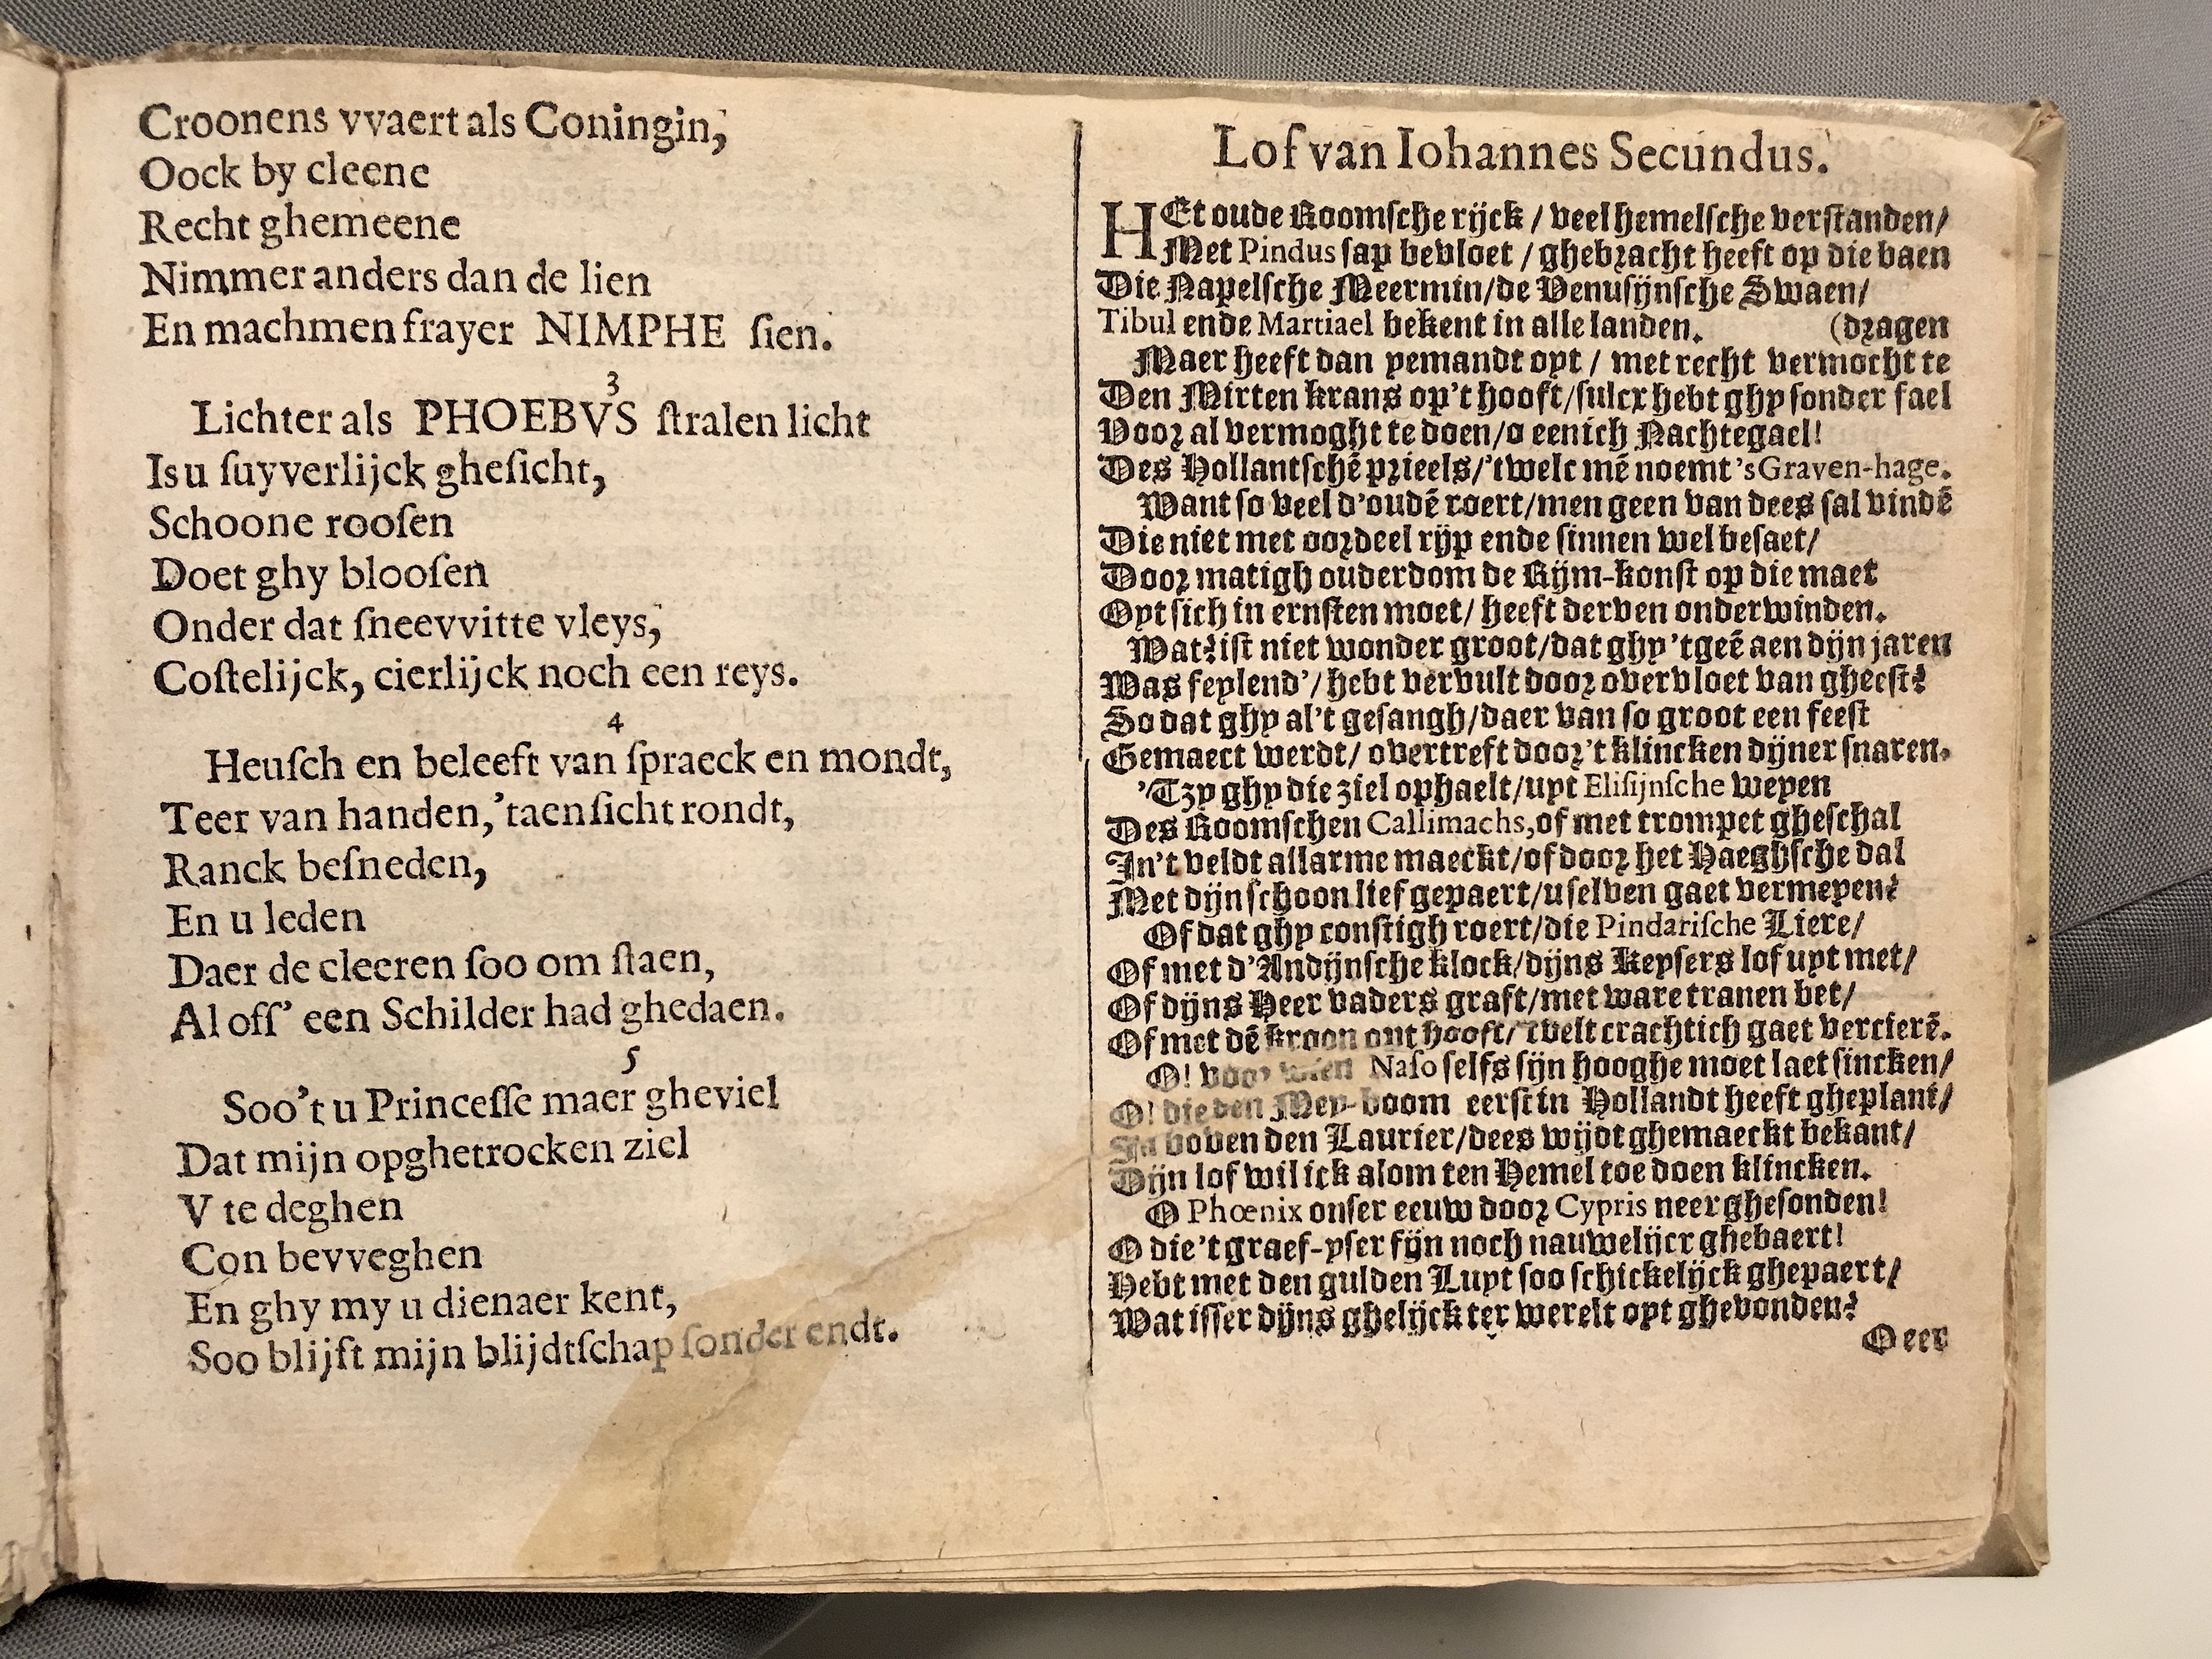 Croonens vvaert als Coningin,
Oock by cleene
Recht ghemeene
Nimmer anders dan de lien
En machmen frayer NIMPHE ſien.
3
Lichter als PHOEBVS ſtralen licht
Is u ſuyverlijck gheſicht,
Schoone rooſen
Doet ghy blooſen
Onder dat ſneevvitte vleys,
Coſtelijck, cierlijck noch een reys.
4
Heuſch en beleeft van ſpraeck en mondt,
Teer van handen, 'taenſicht rondt,
Ranck beſneden,
En u leden
Daer de cleeren ſoo om ſtaen,
Al off' een Schilder had ghedaen.
5
Soo't u Princeſſe maer gheviel
Dat mijn opghetrocken ziel
V te deghen
Con bevveghen
En ghy my u dienaer kent,
Soo blijft mijn blijdtſchap ſonder endt.
Lof van Iohannes Secundus.
HEt oude Roomſche rijck / veel hemelſche verſtanden/
Met Pindus ſap bevloet / ghebracht heeft op die baen
Die Napelſche Meermin/de Venuſijnſche Swaen/
Tibul ende Martiael bekent in alle landen. (dragen
Maer heeft dan yemandt oyt / met recht vermocht te
Den Mirten krans op't hooft/ſulcx hebt ghy ſonder fael
Voor al vermoght te doen/o eenich Nachtegael!
Des Hollantſchē prieels/'twelc mē noemt 'sGraven-hage.
Want ſo veel d'oudē roert/men geen van dees ſal vindē
Die niet met oordeel rijp ende ſinnen wel beſaet/
Door matigh ouderdom de Rijm-konſt op die maet
Oyt ſich in ernſten moet/ heeft derven onderwinden.
Wat? iſt niet wonder groot/dat ghy 'tgeē aen dijn jaren
Was feylend'/ hebt vervult door overvloet van gheeſt?
So dat ghy al't geſangh/daer van ſo groot een feeſt
Gemaect werdt/ overtreft door't klincken dijner ſnaren.
'Tzy ghy die ziel ophaelt/uyt Eliſijnſche weyen
Des Roomſchen Callimachs,of met trompet gheſchal
In't veldt allarme maeckt/of door het Haeghſche dal
Met dijn ſchoon lief gepaert/u ſelven gaet vermeyen?
Of dat ghy conſtigh roert/die Pindariſche Liere/
Of met d'Andijnſche klock/dijns Keyſers lof uyt met/
Of dijns Heer vaders graft/met ware tranen bet/
Of met dē kroon ont hooft/'Twelt crachtich gaet vercierē.
O! voor wien Naſo ſelfs ſijn hooghe moet laet ſincken/
O! die den Mey-boom eerſt in Hollandt heeft gheplant/
In boven den Laurier/dees wijdt ghemaeckt bekant/
Dijn lof wil ick alom ten Hemel toe doen klincken.
O Phœnix onſer eeuw door Cypris neer gheſonden!
O die 't graef-yſer fijn noch nauwelijcx ghebaert!
Hebt met den gulden Luyt ſoo ſchickelijck ghepaert/
Wat iſſer dijns ghelijck ter werelt oyt ghevonden?
O eer